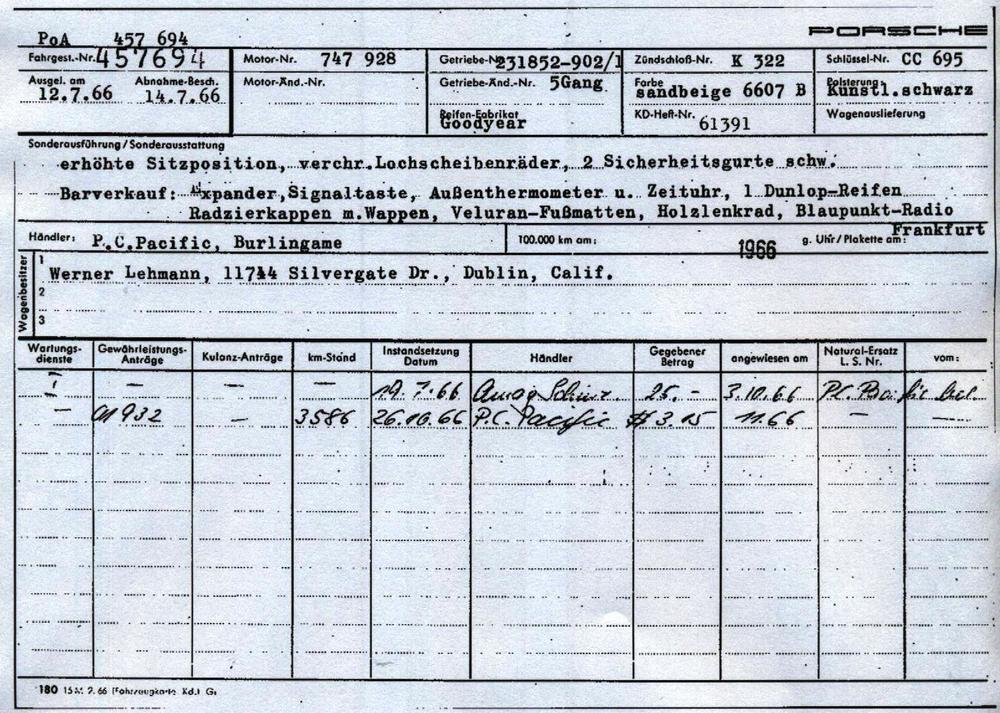 PORSCHE
PoA 457 694
Fahrgest.-Nr. 457694 Motor-Nr. 747 928 Getriebe-Nr. 231852-902/1 Zündschloß-Nr. K 322 Schlüssel-Nr. CC 695
Ausgel. am 12.7.66 Abnahme-Besch. 14.7.66 Motor-Änd.-Nr. Getriebe-Änd.-Nr. 5Gang Farbe sandbeige 6607 B Polsterung: Kunstl.schwarz
Reifen-Fabrikat Goodyear KD-Heft-Nr. 61391 Wagenauslieferung
Sonderausführung/Sonderausstattung
erhöhte Sitzposition, verchr.Lochscheibenräder, 2 Sicherheitsgurte schw.
Barverkauf: xpander, Signaltaste, Außenthermometer u. Zeituhr, 1 Dunlop-Reifen
Radzierkappen m.Wappen, Veluran-Fußmatten, Holzlenkrad, Blaupunkt-Radio
Frankfurt
Händler: P.C.Pacific, Burlingame 100.000 km am: 1966 g. Uhr/Plakette am:
Wagenbesitzer
1 Werner Lehmann, 11744 Silvergate Dr., Dublin, Calif.
2
3
Wartungs-dienste Gewährleistungs-Anträge Kulanz-Anträge km-Stand Instandsetzung Datum Händler Gegebener Betrag angewiesen am Natural-Ersatz L. S. Nr. vom:
— — — 19.7.66 Amag Schinz. 25.- 3.10.66 P.C. Pacific
— 01932 — 3586 26.10.66 P.C. Pacific $ 3.15 11.66 — —
180 15 M. 2. 66 (Fahrzeugkarte Kd.) G